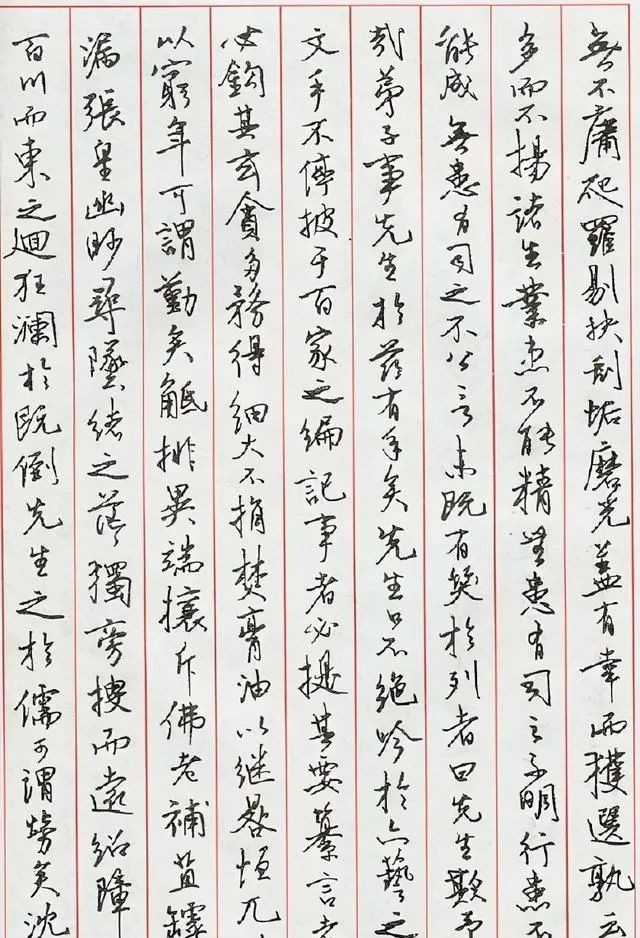 無不庸爬羅剔抉刮垢磨光蓋有幸而獲選孰云
多而不揚諸生業患不能精無患有司之不明行患不
能成無患有司之不公言未既有笑於列者曰先生欺予
哉弟子事先生於茲有年矣先生口不絕吟於六藝之
文手不停披于百家之編記事者必提其要纂言者
必鉤其玄貪多務得細大不捐焚膏油以继晷恒兀
以窮年可謂勤矣觝排異端攘斥佛老補苴罅
漏張皇幽眇尋墜緒之茫獨旁搜而遠紹障
百川而東之迴狂瀾於既倒先生之於儒可謂勞矣沈